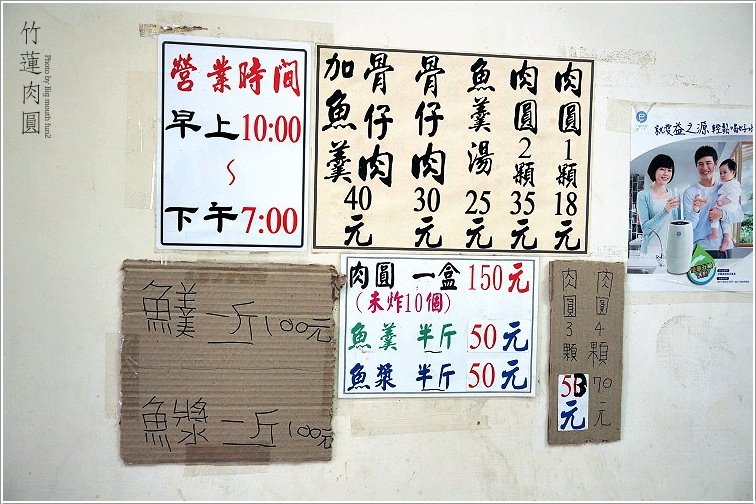 竹蓮肉圓
Photo by: Big mouth fun2
營業時間
早上10:00
~
下午7:00
肉圓1顆18元
肉圓2顆35元
魚羹湯25元
骨仔肉30元
骨仔肉40元
加魚羹
肉圓 一盒 150元
(未炸10個)
魚羹 半斤 50元
魚漿 半斤 50元
一斤100元
魚漿一斤100元
肉圓4顆70元
肉圓3顆53元
就愛益之源,輕鬆喝好水